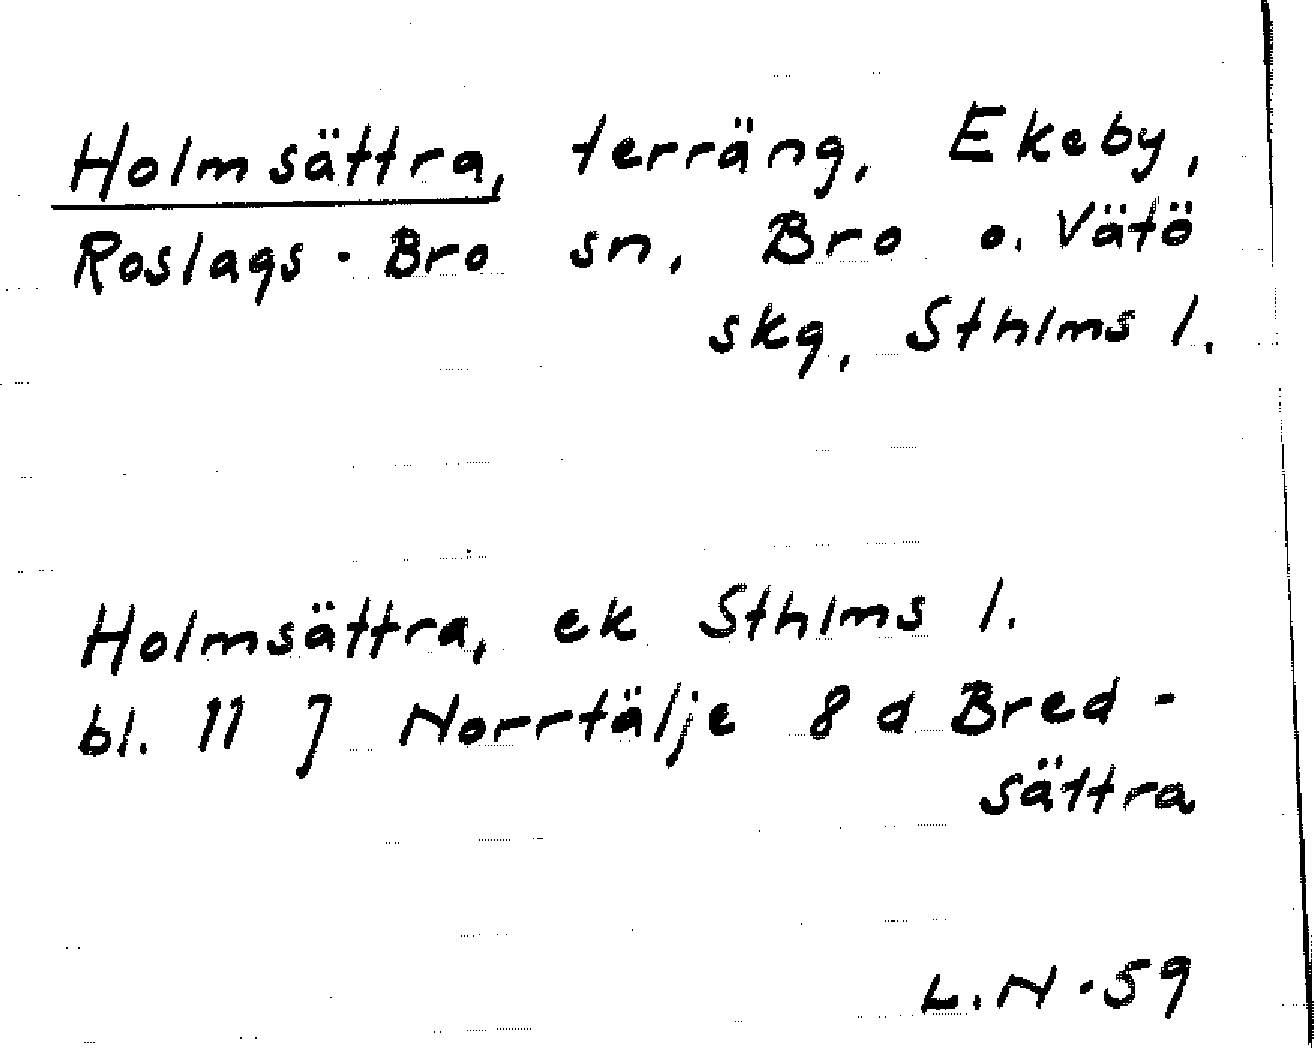 Holmsättra, terräng, Ekeby,
Roslags-Bro sn, Bro o. Vätö
skg, Sthlms l.
Holmsättra, ek Sthlms l.
bl. 11 J Norrtälje 8 d Bred-
sättra
L.N-59